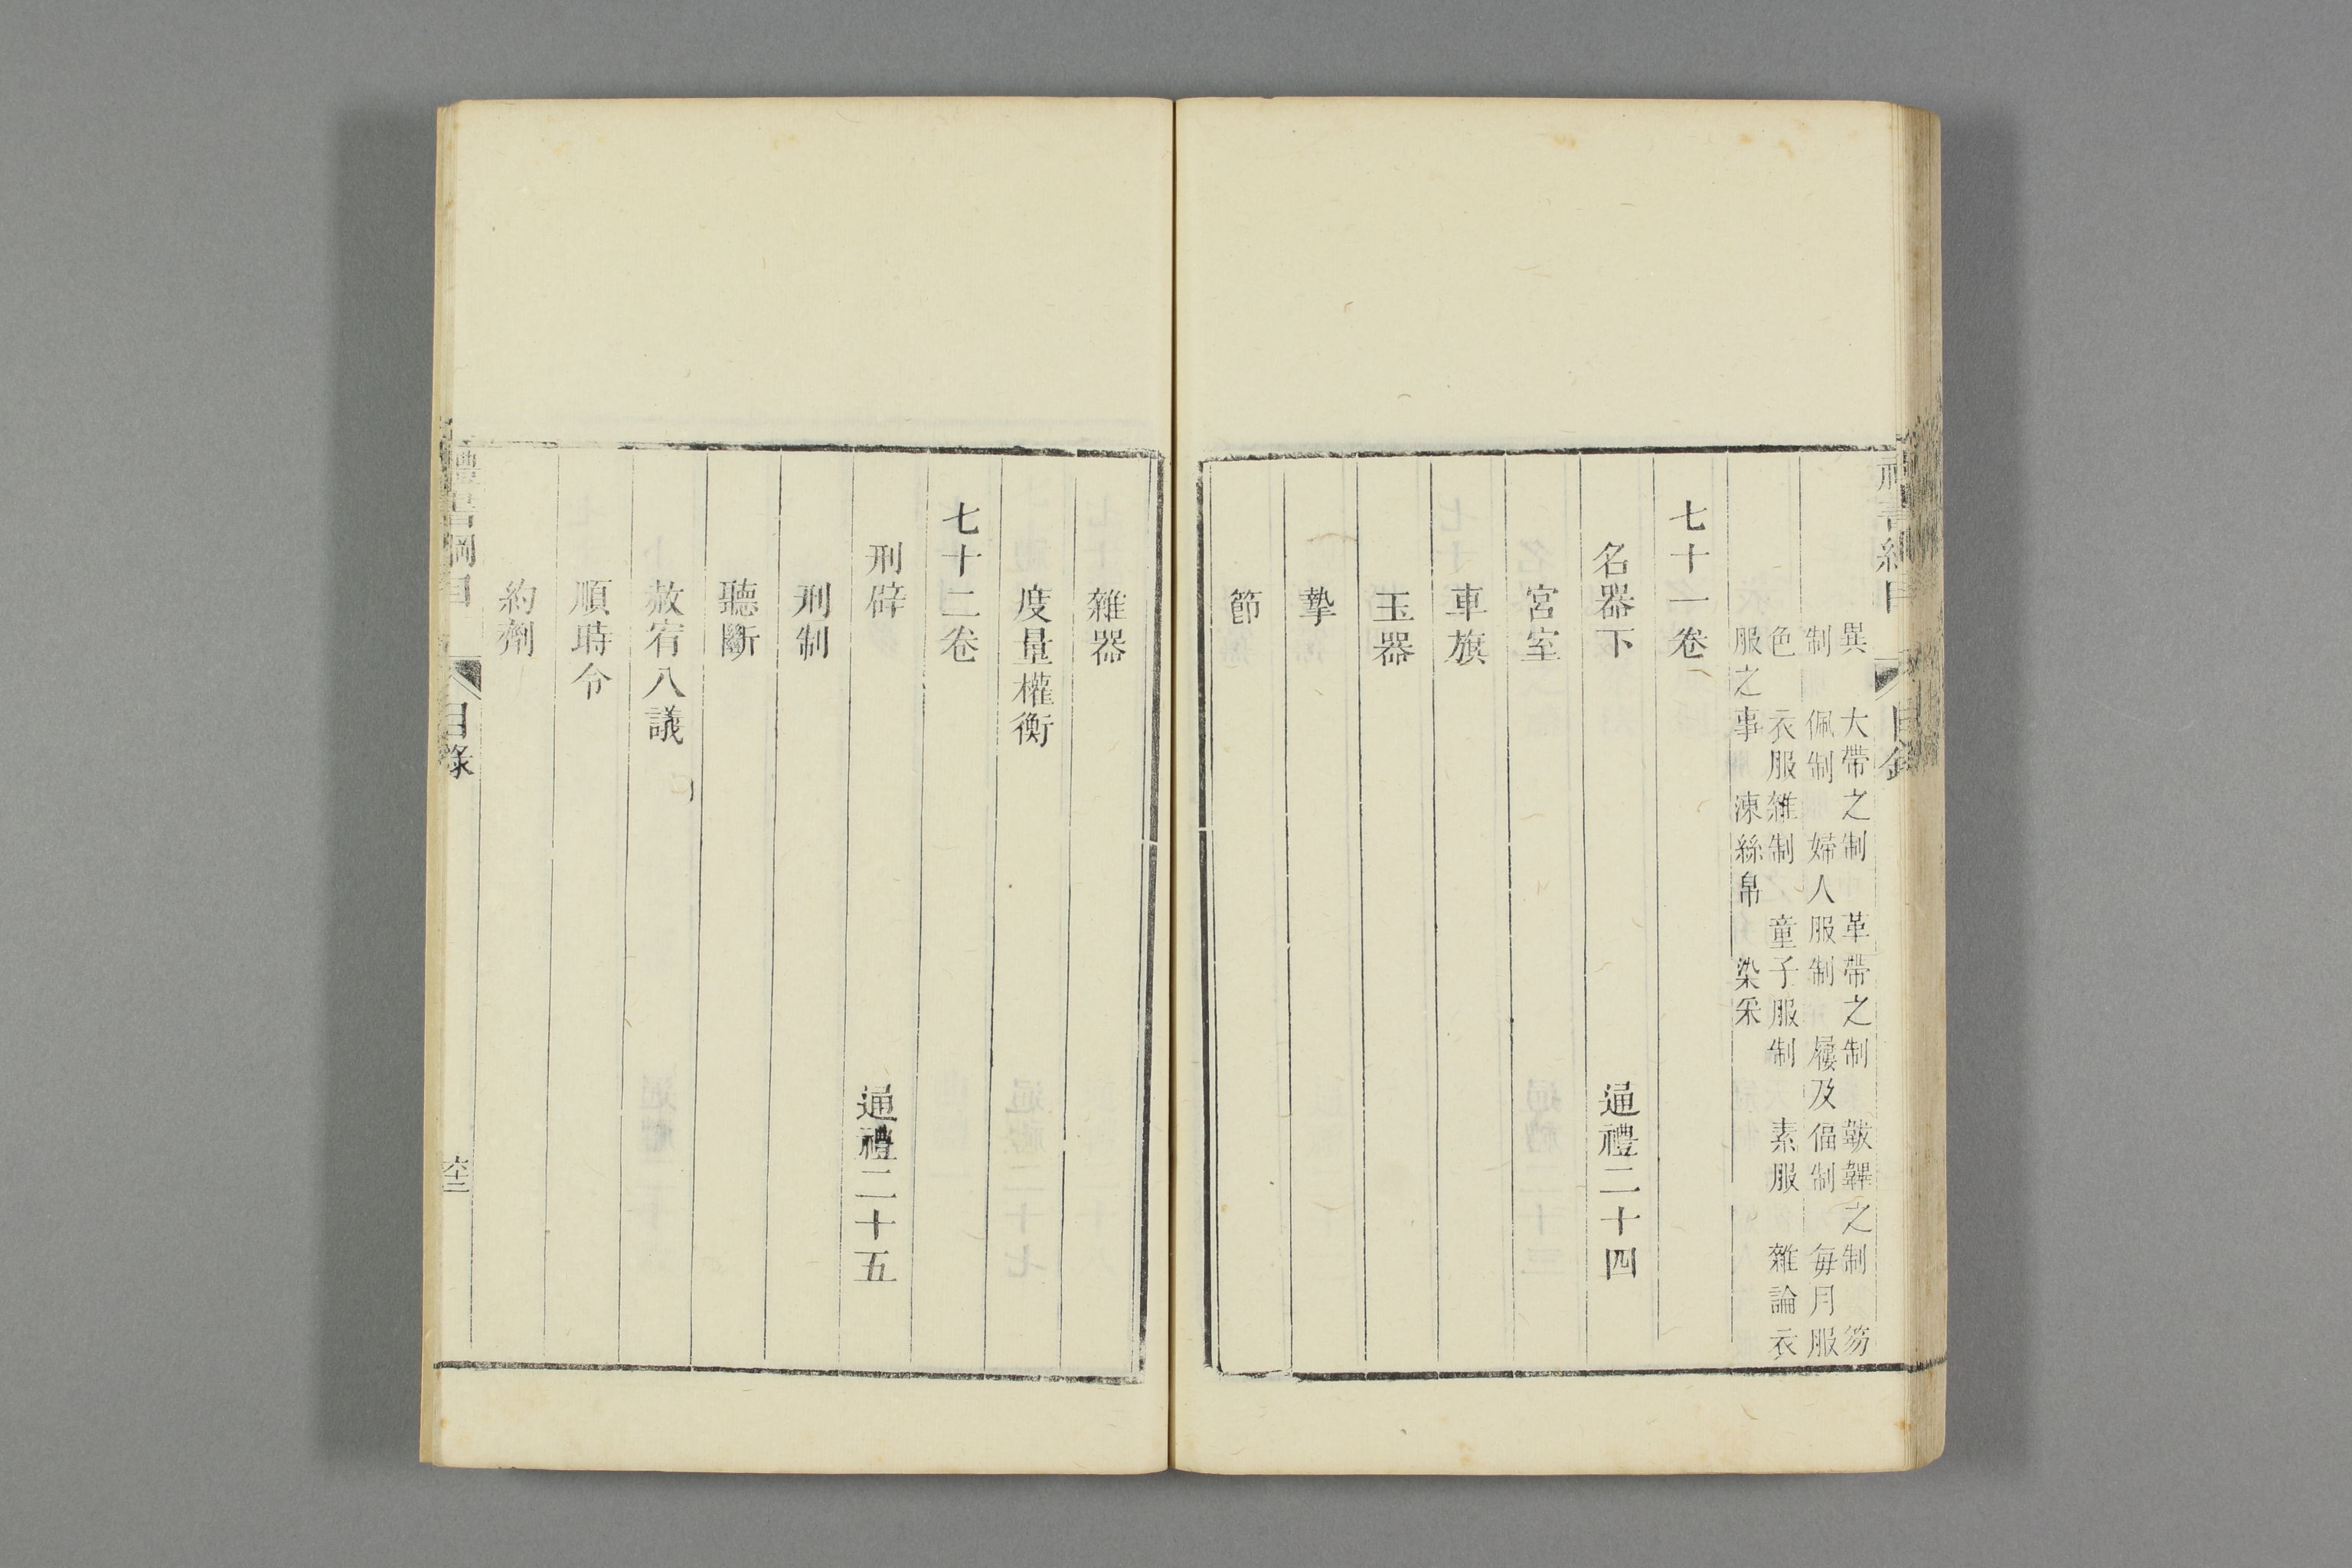 異　大帶之制　革帶之制　韍韠之制　笏
制　佩制　婦人服制　屨及偪制　每月服
色　衣服雜制　童子服制　素服　雜論衣
服之事　湅絲帛　染采
七十一卷
名器下　通禮二十四
宮室
車旗
玉器
摯
節
雜器
度量權衡
七十二卷
刑辟　通禮二十五
刑制
聽斷
赦宥八議
順時令
約劑
禮書綱目　目錄